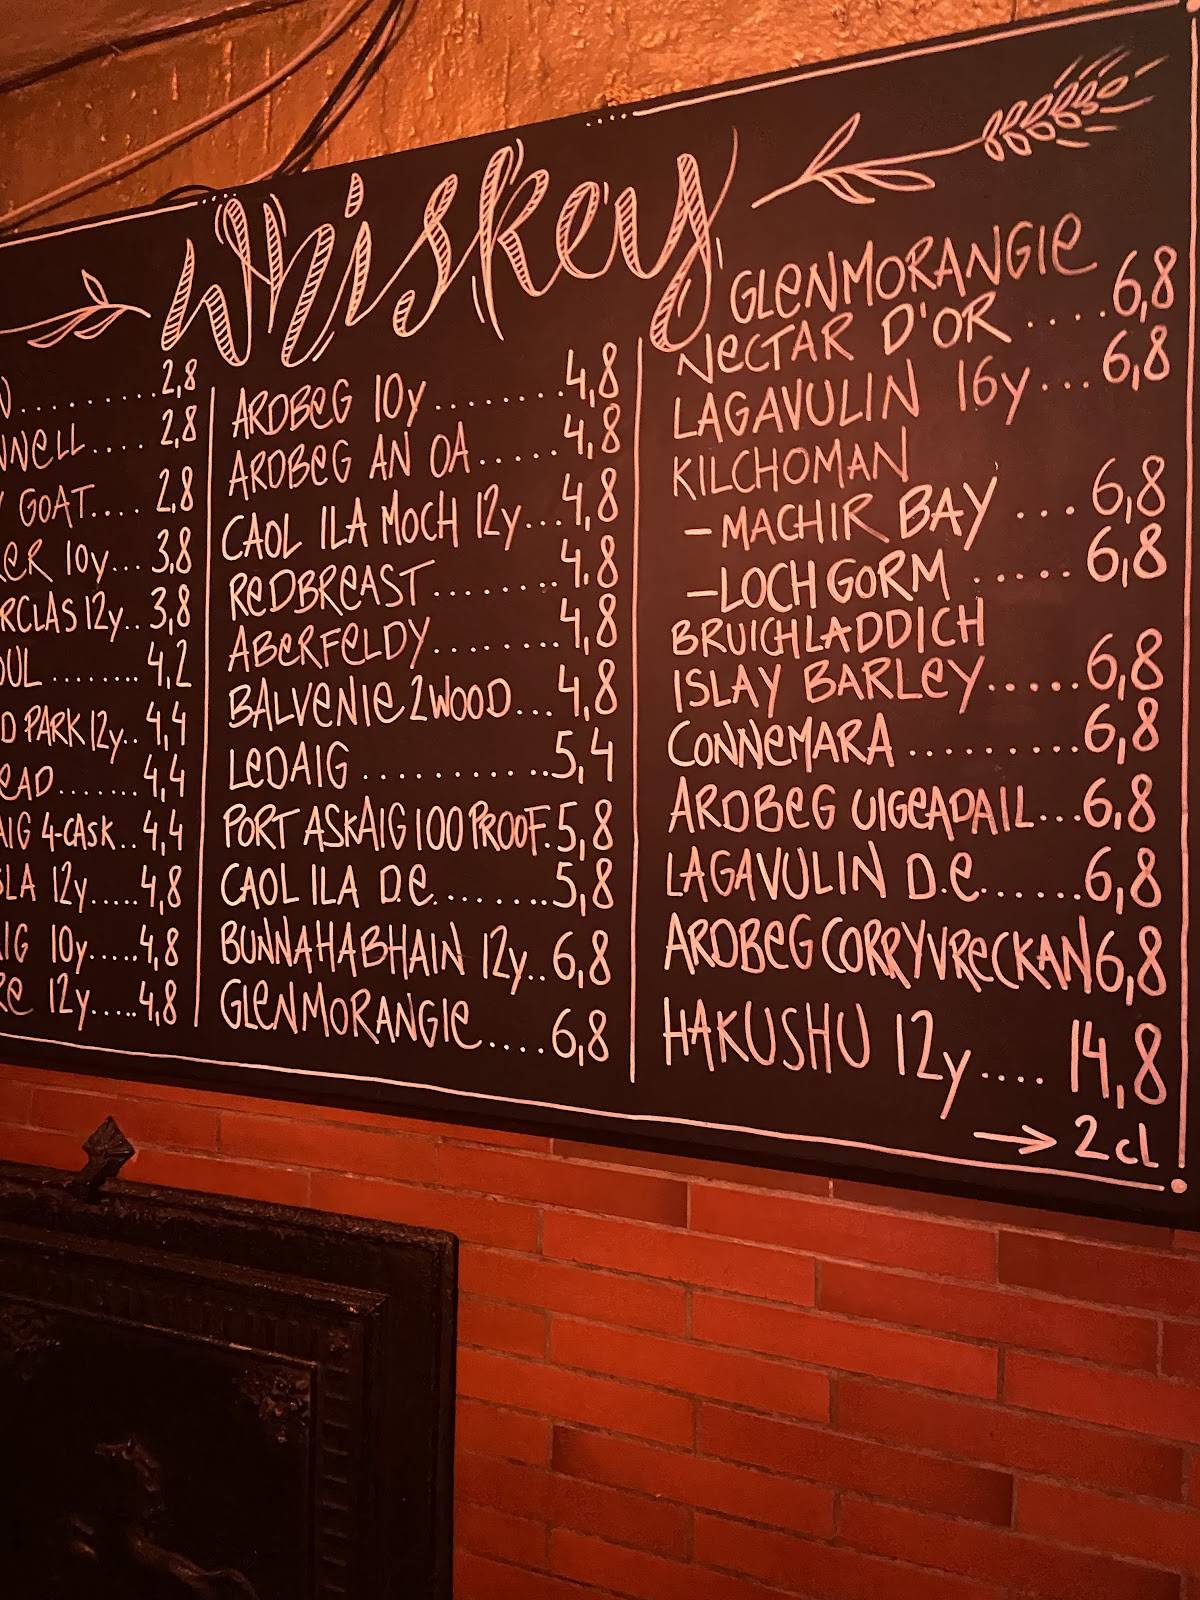 Whiskey
.......... 2,8
NNELL.... 2,8
GOAT.... 2,8
ER 10y... 3,8
RCLAS 12y.. 3,8
OUL ........ 4,2
D PARK 12y.. 4,4
EAD....... 4,4
AIG 4-CASK.. 4,4
LA 12y..... 4,8
IG 10y..... 4,8
RE 12y..... 4,8
ARDBEG 10y ........ 4,8
ARDBEG AN OA...... 4,8
CAOL ILA MOCH 12y... 4,8
REDBREAST ........ 4.8
ABERFELDY......... 4,8
BALVENIE 2WOOD... 4,8
LEDAIG ........... 5,4
PORT ASKAIG 100 PROOF. 5,8
CAOL ILA D.E. ........ 5,8
BUNNAHABHAIN 12y.. 6,8
GLENMORANGIE .... 6,8
GLENMORANGIE
NECTAR D'OR ..... 6,8
LAGAVULIN 16y... 6,8
KILCHOMAN
-MACHIR BAY ... 6,8
-LOCH GORM ..... 6,8
BRUICHLADDICH
ISLAY BARLEY..... 6,8
CONNEMARA ......... 6,8
ARDBEG UIGEADAIL... 6,8
LAGAVULIN D.E. ..... 6,8
ARDBEG CORRYVRECKAN 6,8
HAKUSHU 12y.... 14,8
→ 2cl